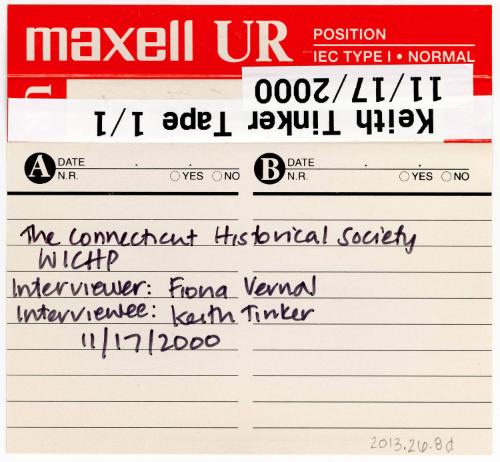 maxell UR
POSITION
IEC TYPE I • NORMAL
11/17/2000
Keith Tinker Tape 1/1
A DATE . .
N.R. ○YES ○NO
B DATE . .
N.R. ○YES ○NO
The Connecticut Historical Society
WICHP
Interviewer: Fiona Vernal
Interviewee: Keith Tinker
11/17/2000
2013.26.8d